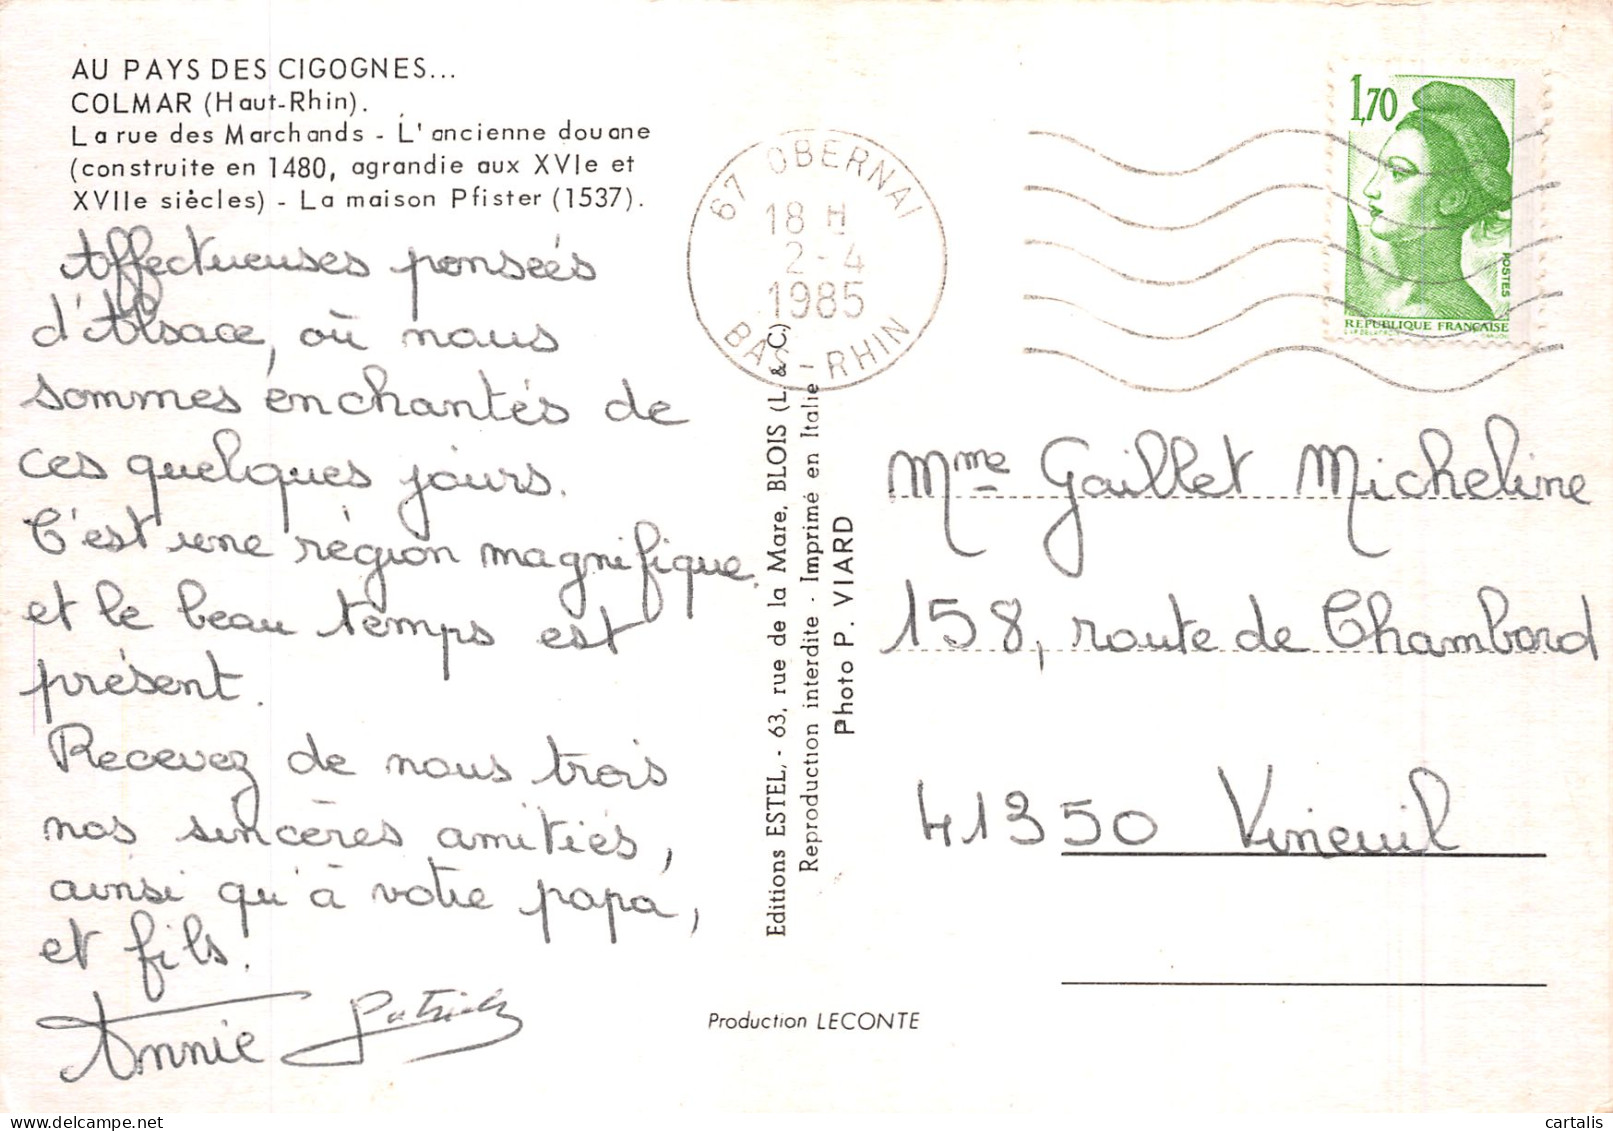 AU PAYS DES CIGOGNES...
COLMAR (Haut-Rhin).
La rue des Marchands - L'ancienne douane
(construite en 1480, agrandie aux XVIe et
XVIIe siècles) - La maison Pfister (1537).
Affectueuses pensées
d'Alsace, où nous
sommes enchantés de
ces quelques jours.
C'est une région magnifique,
et le beau temps est
présent.
Recevez de nous trois
nos sincères amitiés,
ainsi qu'à votre papa,
et fils.
Annie Patrick
Editions ESTEL, - 63, rue de la Mare, BLOIS (L. & C.)
Reproduction interdite - Imprimé en Italie
Photo P. VIARD
Production LECONTE
67 OBERNAI
18 H
2-4
1985
BAS-RHIN
1,70
POSTES
REPUBLIQUE FRANÇAISE
Mme Gaillet Micheline
158, route de Chambord
41350 Vineuil
cartalis